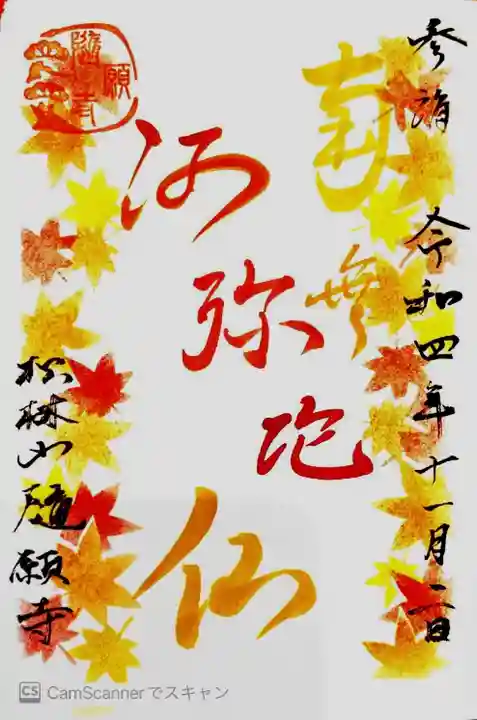 参詣 令和四年十一月二日
南無
阿
弥
陀
仏
松林山随願寺
随願寺
CS CamScannerでスキャン